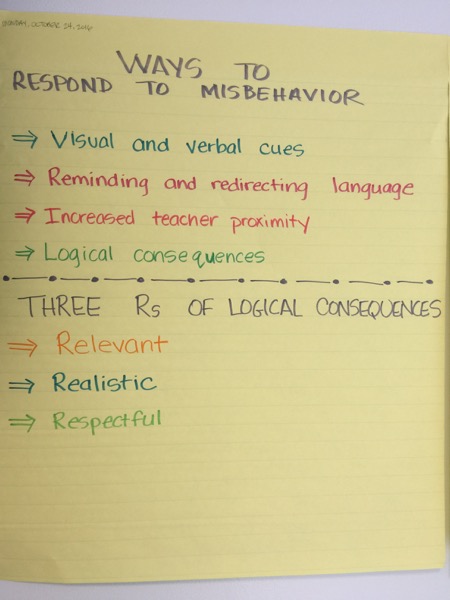 MONDAY, OCTOBER 24, 2016
WAYS TO
RESPOND TO MISBEHAVIOR
⇒ Visual and verbal cues
⇒ Reminding and redirecting language
⇒ Increased teacher proximity
⇒ Logical consequences
THREE Rs OF LOGICAL CONSEQUENCES
⇒ Relevant
⇒ Realistic
⇒ Respectful